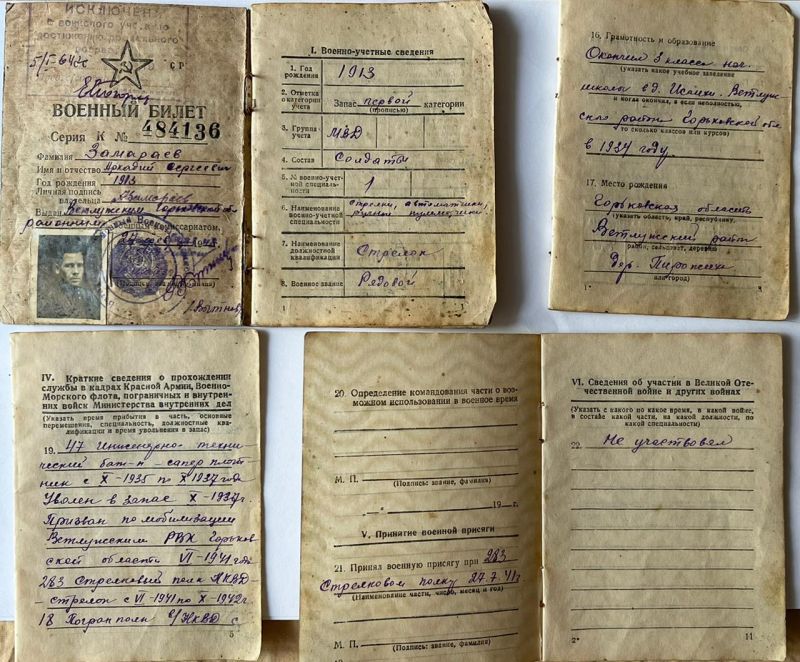 ИСКЛЮЧЕН
с воинского учета по
достижению предельного
возраста
5/I-64г.
СР
ВОЕННЫЙ БИЛЕТ
Серия К № 484136
Фамилия Замараев
Имя и отчество Аркадий Сергеевич
Год рождения 1913
Личная подпись
владельца Замараев
Выдан Ветлужским Горьковской об
районным военным комиссариатом,
I. Военно-учетные сведения
1. Год рождения 1913
2. Отметка о категории учета Запас первой категории
(прописью)
3. Группа учета МВД
4. Состав Солдаты
5. № военно-учетной специальности 1
6. Наименование военно-учетной специальности стрелки, автоматчики, ручные пулеметчики.
7. Наименование должностной квалификации Стрелок
8. Военное звание Рядовой
1
16. Грамотность и образование
Окончил 3 класса нач.
(указать какое учебное заведение
школы в д. Ветлуж-
и когда окончил, а если неполностью,
ского район Горьковской обл.
то сколько классов или курсов)
в 1924 году.
17. Место рождения
Горьковская область
(указать область, край, республику,
Ветлужский район
район, сельсовет, деревню
дер.
или город)
IV. Краткие сведения о прохождении
службы в кадрах Красной Армии, Военно-
Морского флота, пограничных и внутрен-
них войск Министерства внутренних дел
(Указать время прибытия в часть, основные
перемещения, специальность, должностные ква-
лификации и время увольнения в запас)
19. 47 Инженерно-техни
ческий бат-н – сапер плот
ник с X-1935 по X 1937 год
Уволен в запас X-1937г.
Призван по мобилизации
Ветлужским РВК Горьков
ской области VI-1941 год
283 Стрелковый полк НКВД –
стрелок с VI-1941 по X-1942г.
18 Погран полк в/НКВД с
5
20. Определение командования части о воз-
можном использовании в военное время
М. П.
(Подпись: звание, фамилия)
19 г.
V. Принятие военной присяги
21. Принял военную присягу при 283
Стрелковом полку 27.7.41г
(Наименование части, число, месяц и год)
М. П.
(Подпись: звание, фамилия)
VI. Сведения об участии в Великой Оте-
чественной войне и других войнах
(Указать с какого по какое время, в какой войне,
в составе какой части, на какой должности, по
какой специальности)
22. Не участвовал
2*
11